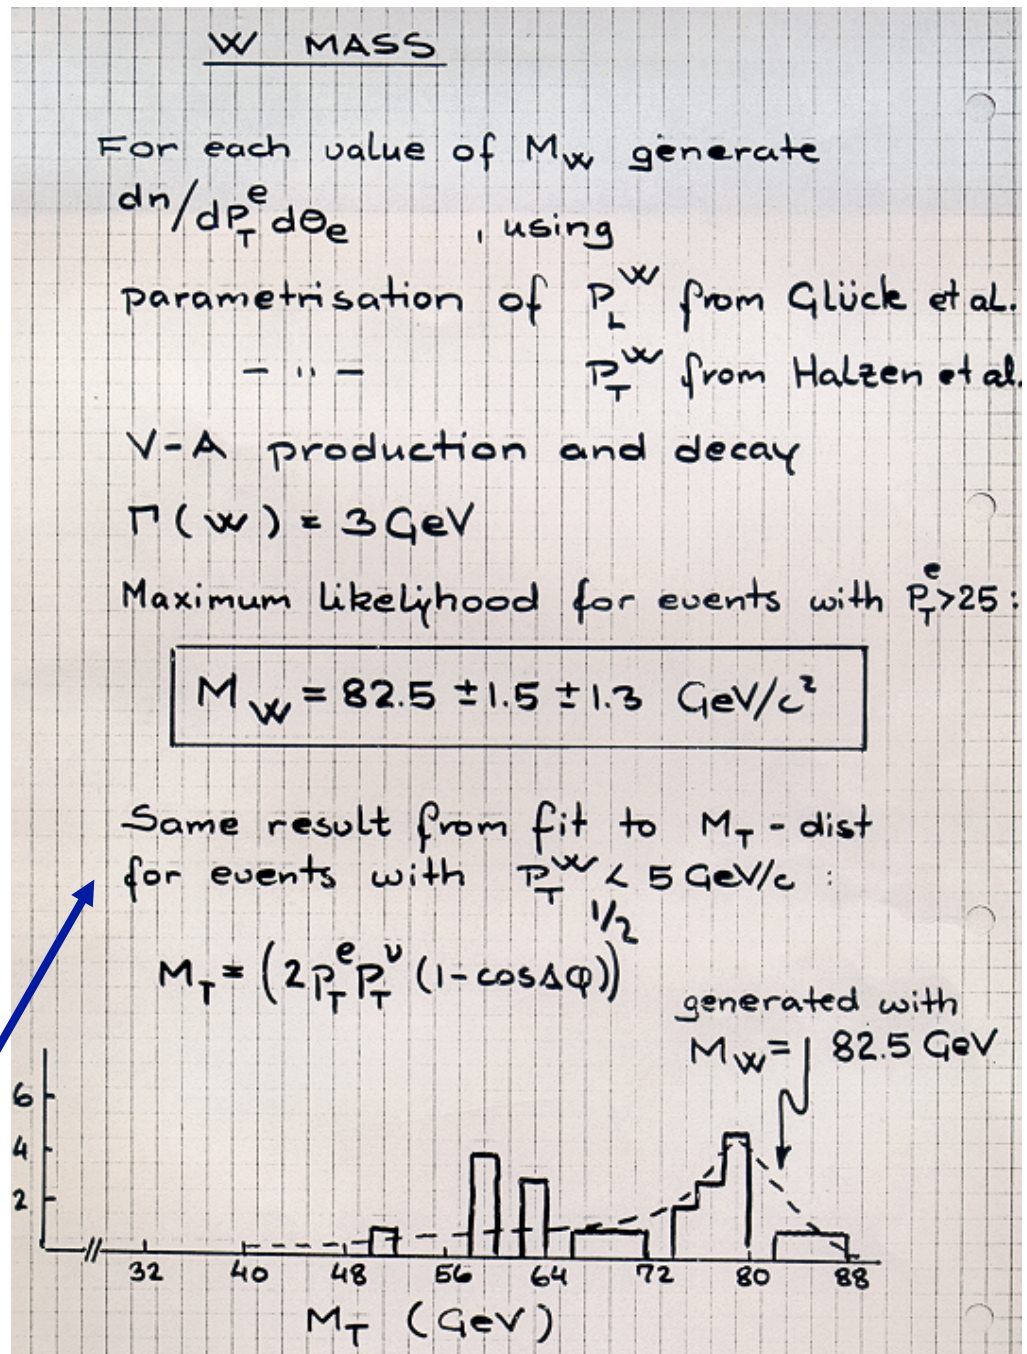 W MASS
For each value of M_W generate
dn/dP_T^e dΘ_e , using
parametrisation of P_L^W from Glück et al.
– " – P_T^W from Halzen et al.
V-A production and decay
Γ(W) = 3 GeV
Maximum likelijhood for events with P_T^e>25 :
M_W = 82.5 ±1.5 ±1.3 GeV/c²
Same result from fit to M_T - dist
for events with P_T^W < 5 GeV/c :
M_T = (2 P_T^e P_T^ν (1-cosΔφ))^1/2
generated with
M_W = 82.5 GeV
6
4
2
32 40 48 56 64 72 80 88
M_T (GeV)